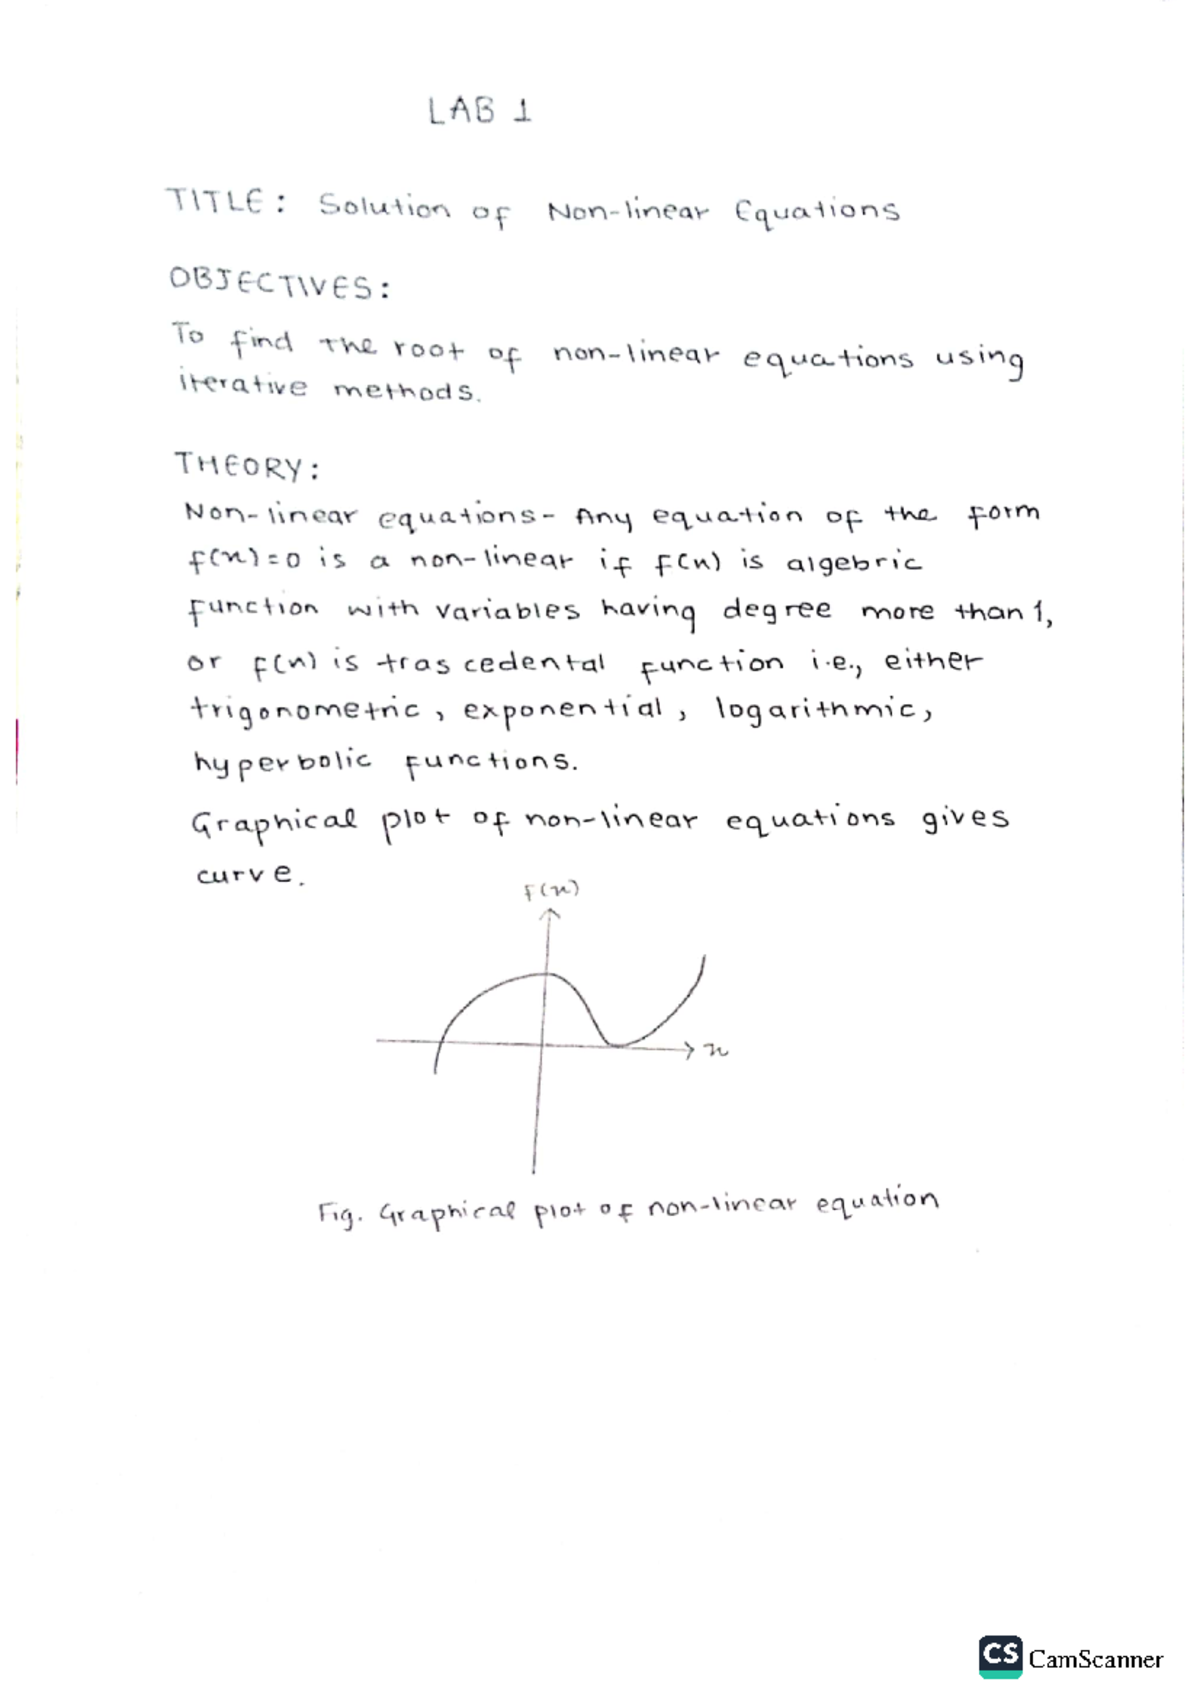 LAB 1
TITLE: Solution of Non-linear Equations
OBJECTIVES:
To find the root of non-linear equations using
iterative methods.
THEORY:
Non-linear equations- Any equation of the form
f(x)=0 is a non-linear if f(x) is algebric
function with variables having degree more than 1,
or f(x) is trascedental function i.e., either
trigonometric, exponential, logarithmic,
hyperbolic functions.
Graphical plot of non-linear equations gives
curve.
f(x)
x
Fig. Graphical plot of non-linear equation
CS CamScanner